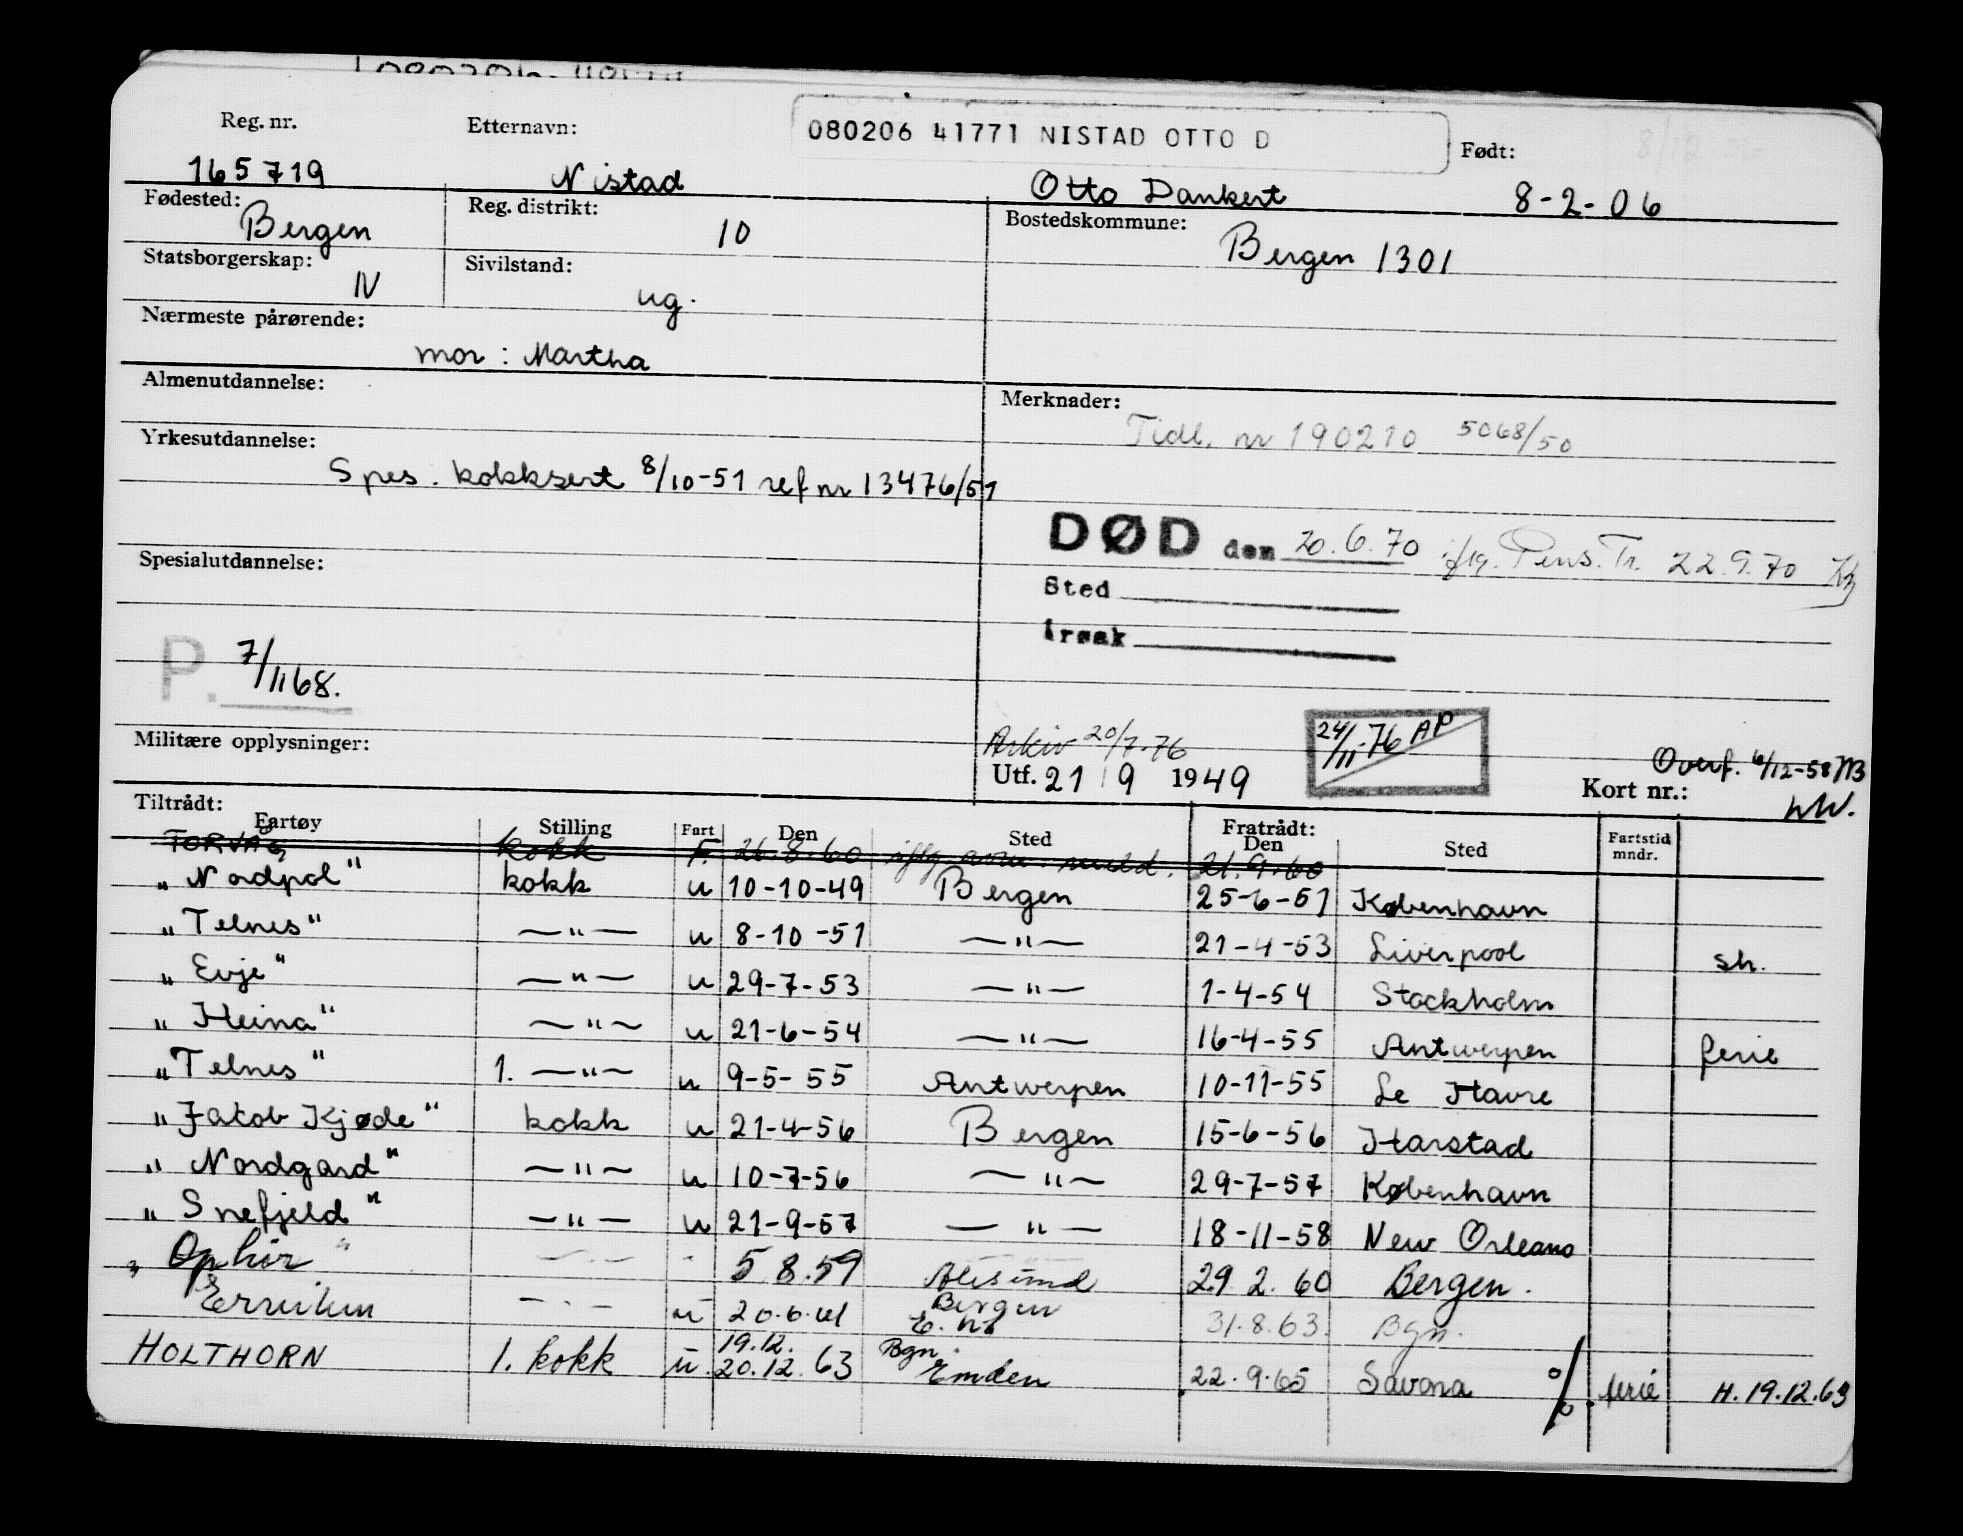 Reg. nr. Etternavn: 080206 41771 NISTAD OTTO D Født:
165719 Nistad Otto Dankert 8-2-06
Fødested: Bergen Reg. distrikt: 10 Bostedskommune: Bergen 1301
Statsborgerskap: N Sivilstand: ug.
Nærmeste pårørende:
mor: Martha
Almenutdannelse: Merknader:
Tidl. nr 190210 5068/50
Yrkesutdannelse:
Spes. kokksert 8/10-51 ref nr 13476/51
DØD den 20.6.70 iflg. Pens. Tr. 22.9.70
Spesialutdannelse: Sted
Årsak
P. 7/1168.
Militære opplysninger: Arkiv 20/7-76 24/11-76 AP Overf. 6/12-58
Utf. 21 9 1949 Kort nr.:
Tiltrådt: Fratrådt:
Fartøy Stilling Fart Den Sted Den Sted Fartstid mndr.
TORVÅG kokk F. 26.8.60 iflg. meld. 21.9.60
"Nordpol" kokk u 10-10-49 Bergen 25-6-51 København
"Telnes" —"— u 8-10-51 —"— 21-4-53 Liverpool sh.
"Evje" —"— u 29-7-53 —"— 1-4-54 Stockholm
"Heina" —"— u 21-6-54 —"— 16-4-55 Antwerpen ferie
"Telnes" 1. —"— u 9-5-55 Antwerpen 10-11-55 Le Havre
"Jakob Kjøde" kokk u 21-4-56 Bergen 15-6-56 Harstad
"Nordgard" —"— u 10-7-56 —"— 29-7-57 København
"Snefjeld" —"— u 21-9-57 —"— 18-11-58 New Orleans
"Ophir" —"— 5 8.59 Ålesund 29 2. 60 Bergen.
Erviken —"— u 20.6.61 Bergen 31.8.63. Bgn.
19.12. Bgn.
HOLTHORN 1. kokk u. 20.12.63 Emden 22.9.65 Savona % ferie H. 19.12.63